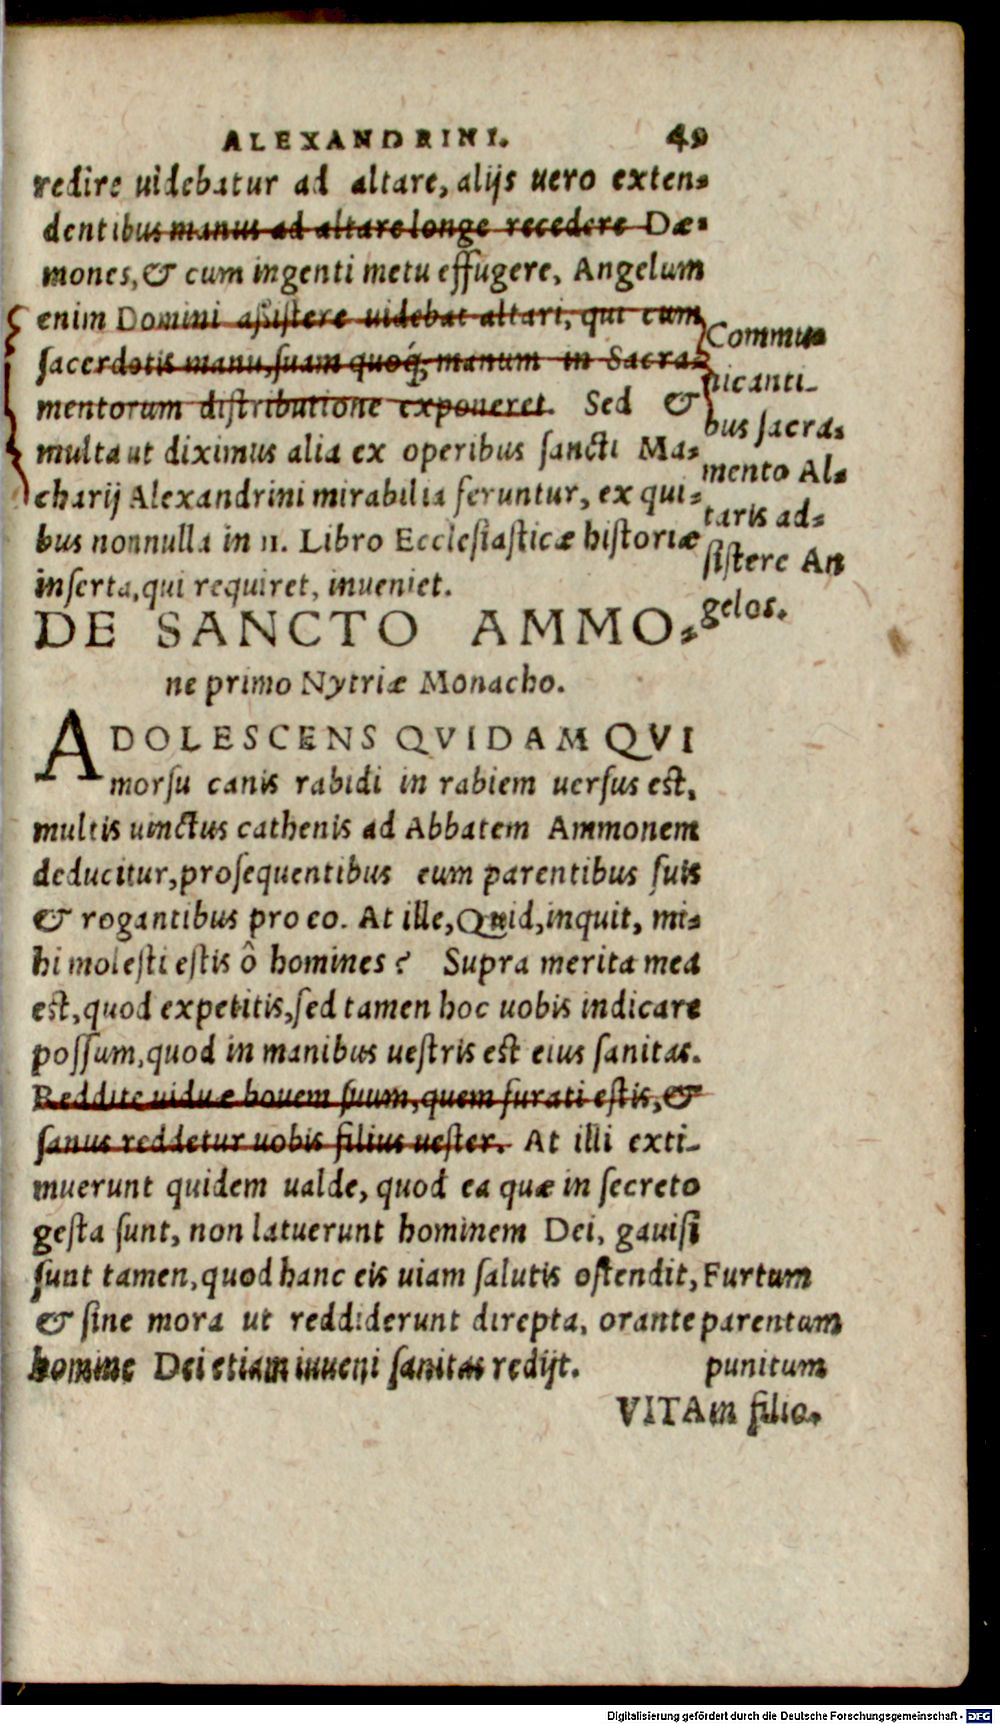 ALEXANDRINI. 49
redire uidebatur ad altare, alijs uero exten-
dentibus manus ad altare longe recedere Dæ-
mones, & cum ingenti metu effugere, Angelum
enim Domini aſsiſtere uidebat altari, qui cum
ſacerdotis manu, ſuam quoq; manum in Sacra-
mentorum diſtributione exponeret. Sed &
multa ut diximus alia ex operibus ſancti Ma-
charij Alexandrini mirabilia feruntur, ex qui-
bus nonnulla in 11. Libro Eccleſiaſticæ hiſtoriæ
inſerta, qui requiret, inueniet.
Commu-
nicanti-
bus ſacra-
mento Al-
taris ad-
ſiſtere An
gelos.
DE SANCTO AMMO-
ne primo Nytriæ Monacho.
ADOLESCENS QVIDAM QVI
morſu canis rabidi in rabiem uerſus eſt,
multis uinctus cathenis ad Abbatem Ammonem
deducitur, proſequentibus eum parentibus ſuis
& rogantibus pro eo. At ille, Quid, inquit, mi-
hi moleſti eſtis ô homines? Supra merita mea
eſt, quod expetitis, ſed tamen hoc uobis indicare
poſſum, quod in manibus ueſtris eſt eius ſanitas.
Reddite uiduæ bouem ſuum, quem furati eſtis, &
ſanus reddetur uobis filius ueſter. At illi exti-
muerunt quidem ualde, quod ea quæ in ſecreto
geſta ſunt, non latuerunt hominem Dei, gauiſi
ſunt tamen, quod hanc eis uiam ſalutis oſtendit,
& ſine mora ut reddiderunt direpta, orante
homine Dei etiam iuueni ſanitas redijt.
Furtum
parentum
punitum
filio.
VITAm
Digitalisierung gefördert durch die Deutsche Forschungsgemeinschaft - DFG